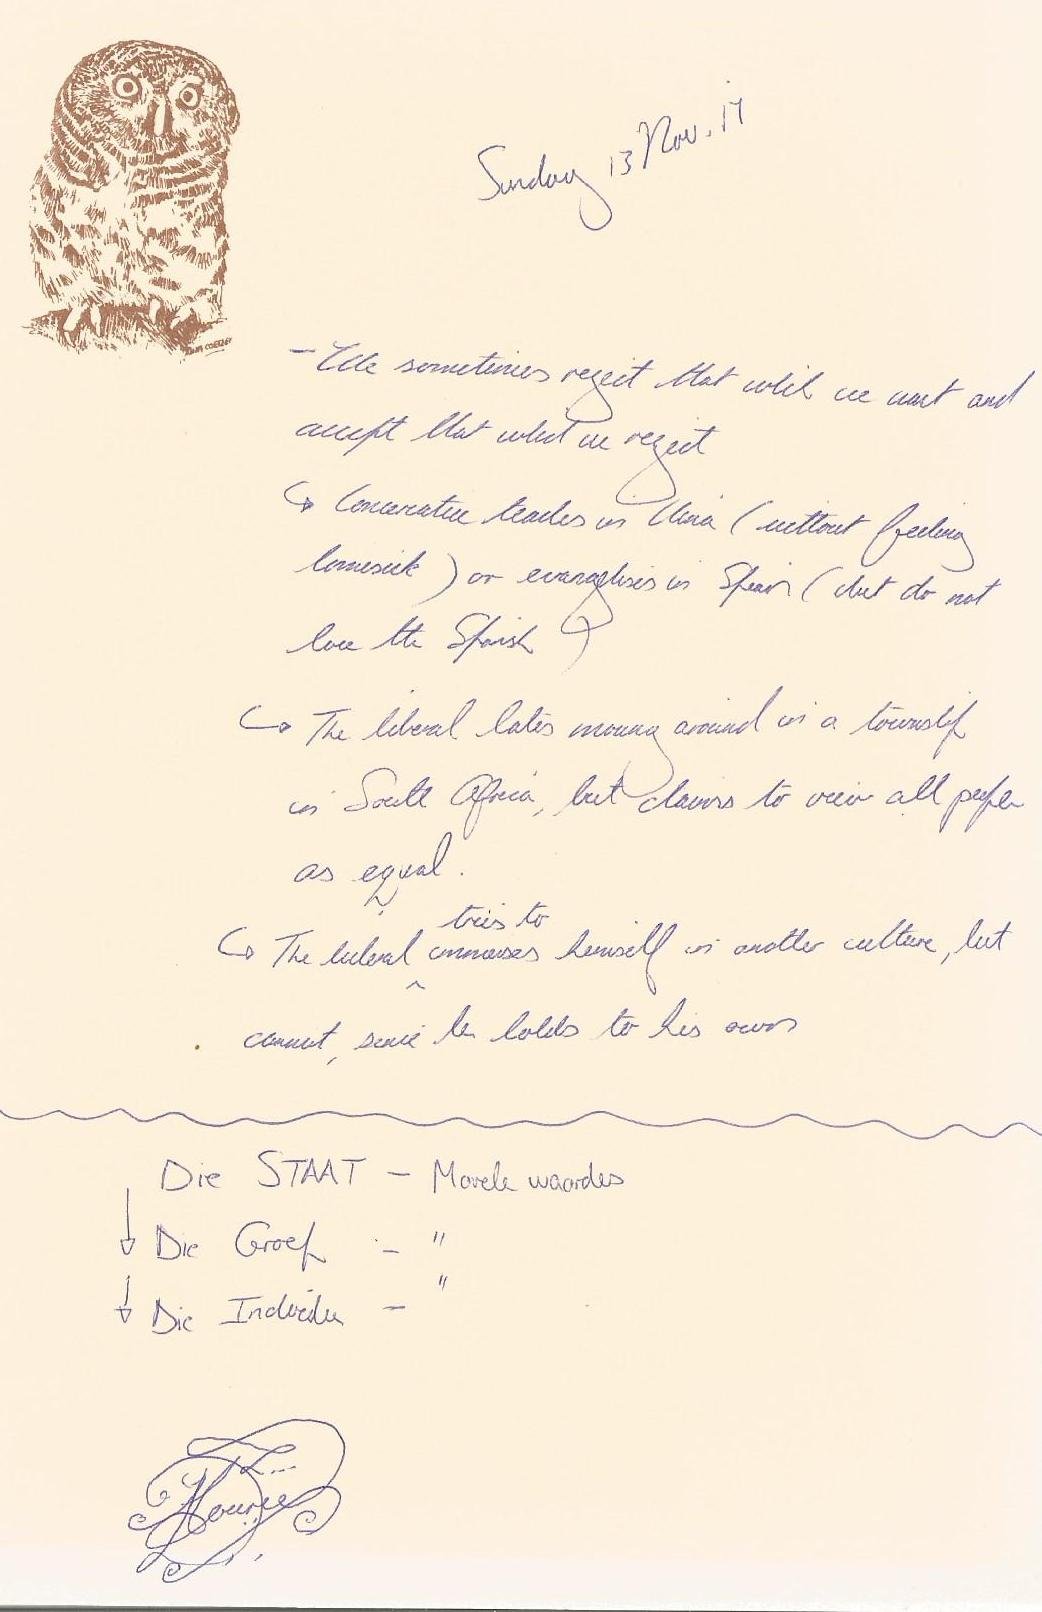 Sunday 13 Nov. 17
- We sometimes reject that which we want and
accept that what we reject
↳ Conservative teaches in China (without feeling
homesick) or evangelises in Spain (but do not
love the Spanish)
↳ The liberal hates moving around in a township
in South Africa, but claims to view all people
as equal.
tries to
↳ The liberal ^ immerses himself in another culture, but
cannot, since he holds to his own
Die STAAT - Morele waardes
↓ Die Groep - "
↓ Die Individu - "